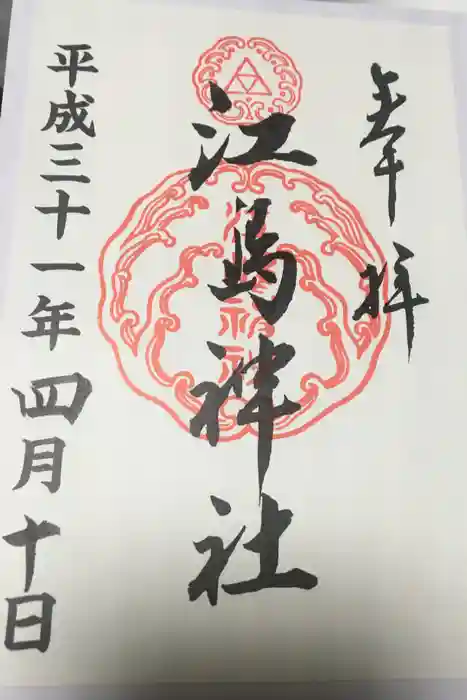 奉拝
江島神社
平成三十一年四月十日